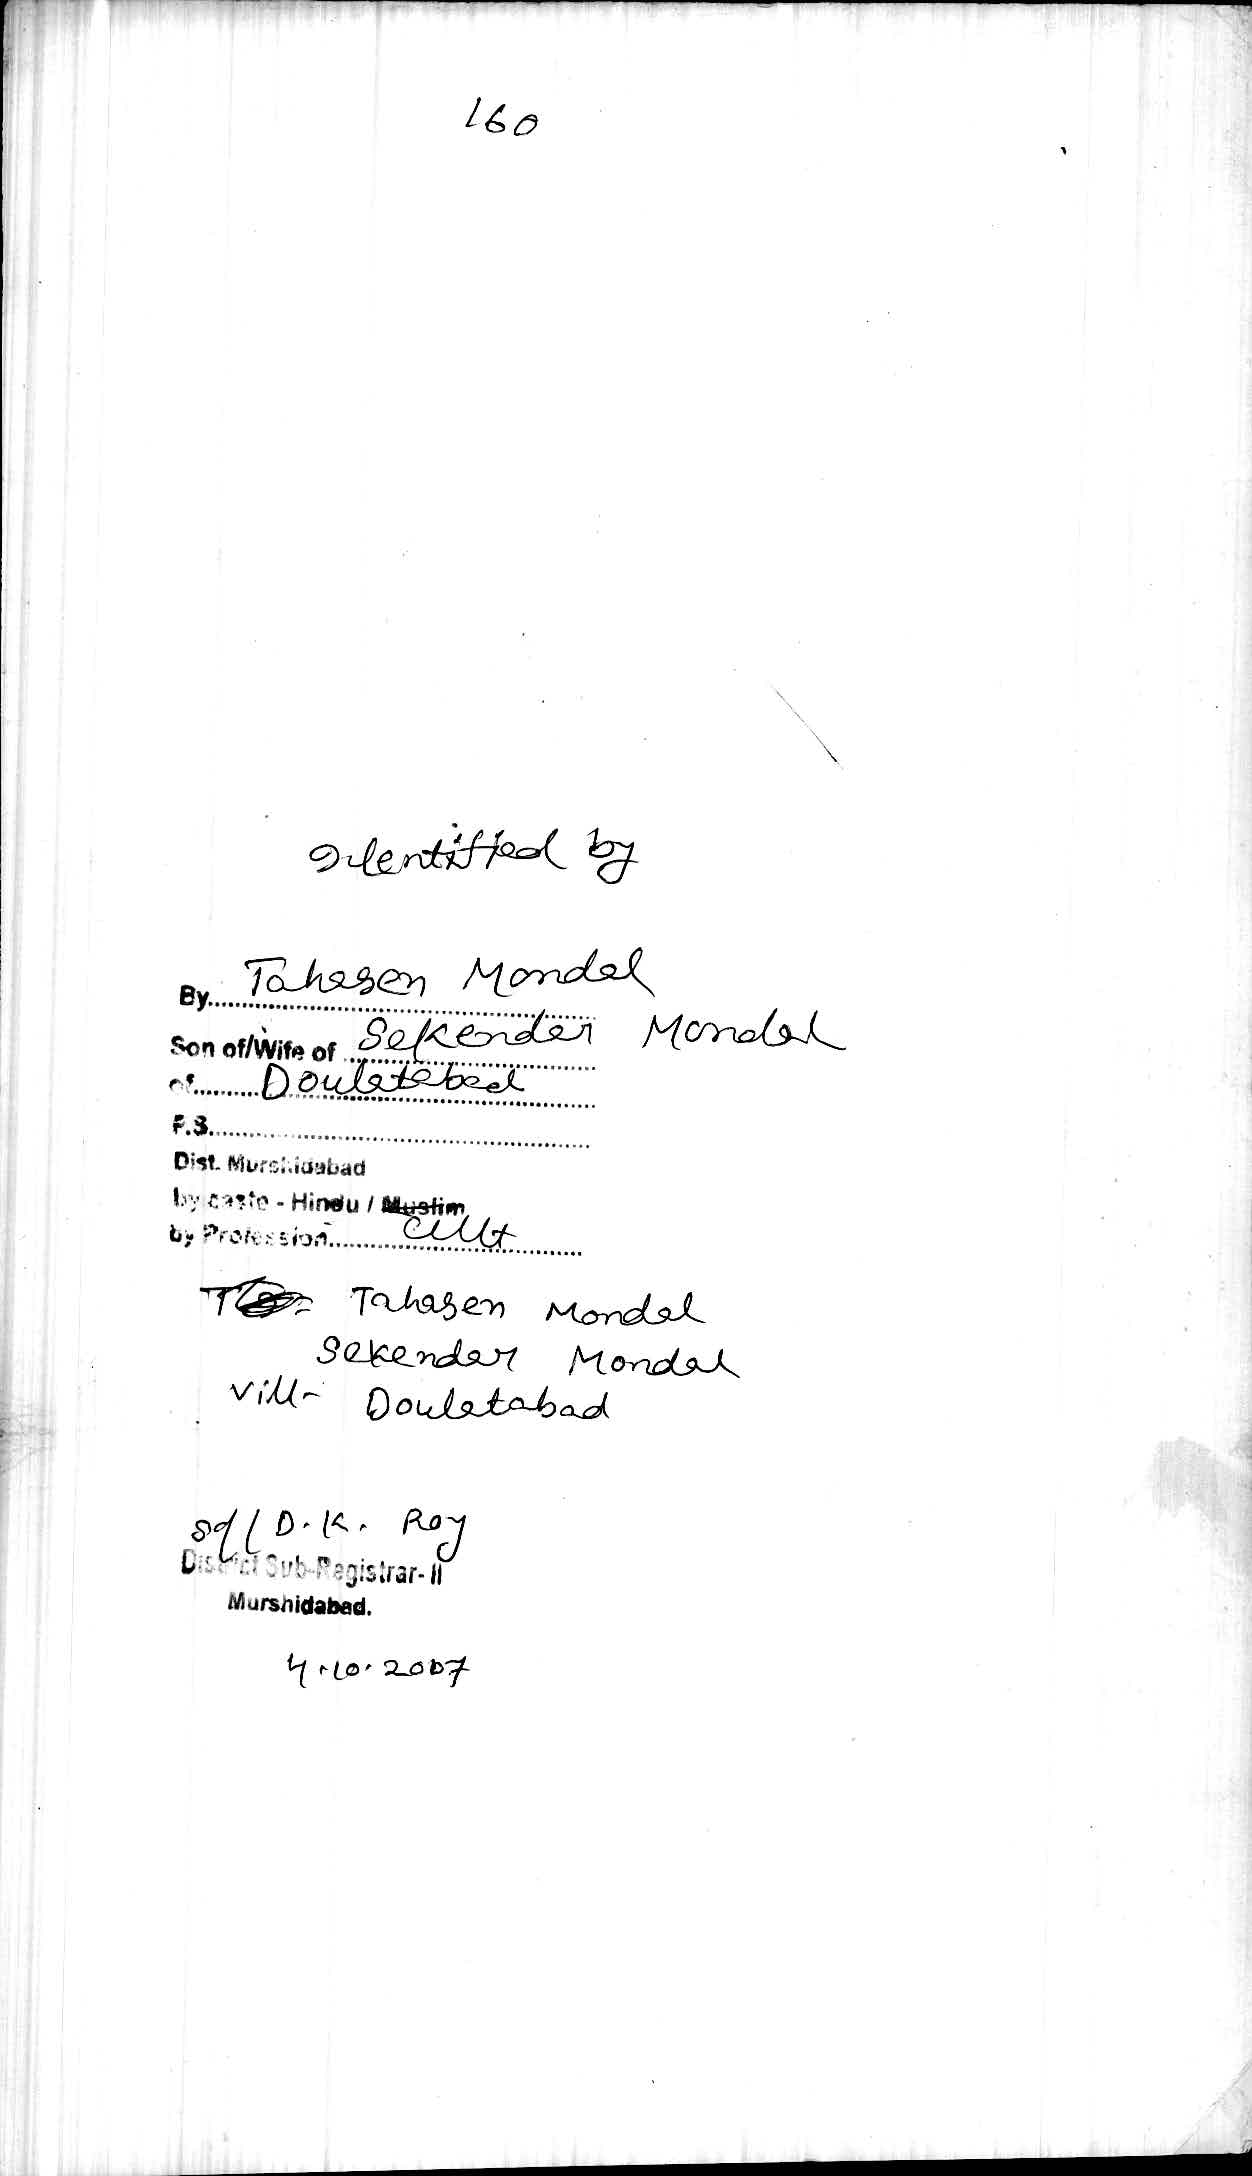 160
Identified by
By Tahasen Mondal
Son of/Wife of Sekender Mondal
of Douletabad
P.S.
Dist. Murshidabad
by caste - Hindu / Muslim
by Profession cult
Tahasen Mondal
Sekender Mondal
Vill- Douletabad
sd/ D. K. Roy
District Sub-Registrar- II
Murshidabad.
4.10.2007